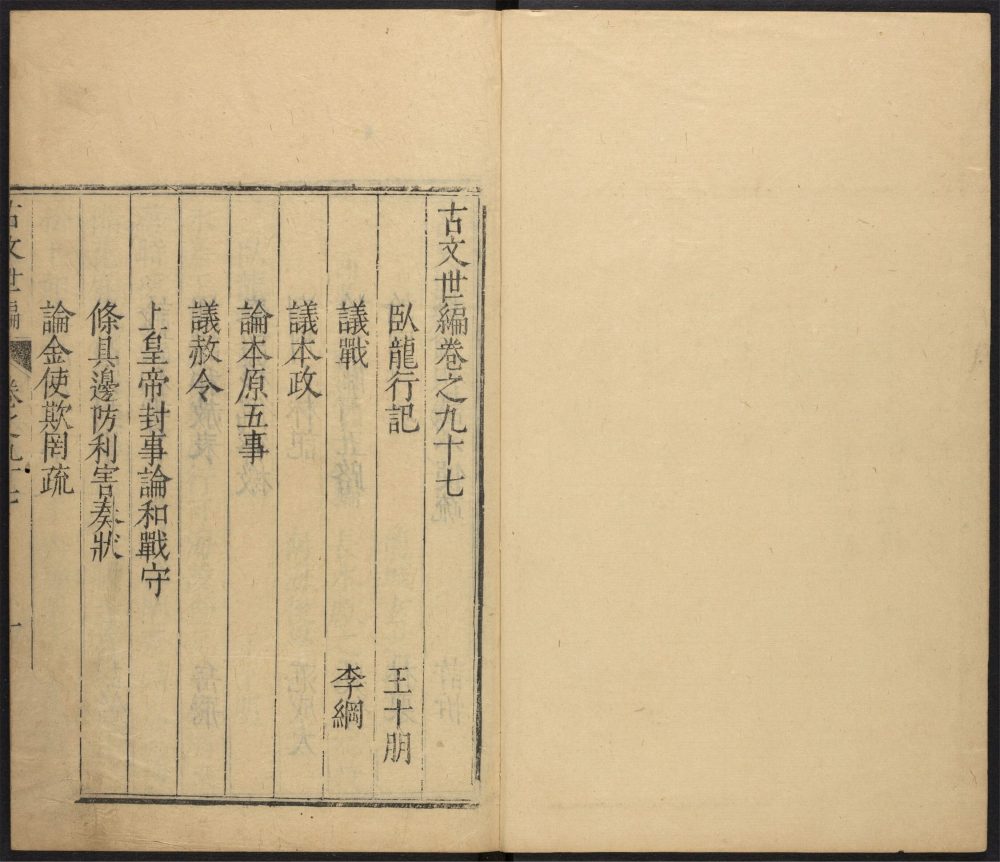 古文世編卷之九十七
臥龍行記 王十朋
議戰 李綱
議本政
論本原五事
議赦令
上皇帝封事論和戰守
條具邊防利害奏狀
論金使欺罔疏
古文世編 卷之九十七 一